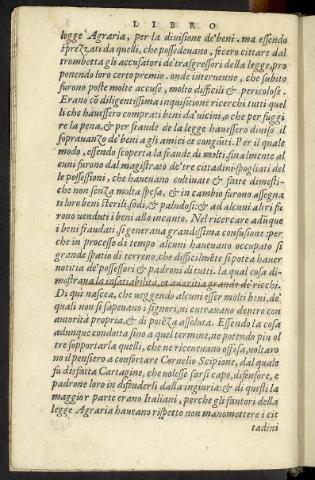 LIBRO
legge Agraria, per la divisione de'beni. ma essendo
sprezzati da quelli, che possedeuano, fecero cittare dal
trombetta gli accusatori de'trasgressori della legge, pro
ponendo loro certo premio. onde interuenne, che subito
furono poste molte accuse, molto difficili & pericolose.
Erano cō diligentissima inquisitione ricerchi tutti quel
li che hauessero comprati beni da'uicini, o che per fuggi
re la pena, & per fraude de la legge hauessero diuiso il
soprauanzo de'beni a gli amici et congiuti. Per il quale
modo, essendo scoperta la fraude di molti, finalmente al
cuni furono dal magistrato de'tre cittadini spogliati del
le possessioni, che haueuano coltiuate & fatte dimesti-
che non senza molta spesa, & in cambio furono assegna
ti loro beni sterili, sodi, & paludosi: & ad alcuni altri fu
rono uenduti i beni allo incanto. Nel ricercare adūque
i beni fraudati si generaua grandissima confusione: per
che in processo di tempo alcuni haueuano occupato si
grande spatio di terreno, che difficilmēte si potea hauer
notitia de'possessori & padroni di tutti. la qual cosa di-
mostraua la insatiabilità, et auaritia grande de ricchi.
Di qui nascea, che ueggendo alcuni esser molti beni, de
quali non si sapeuano i signori, ui entrauano dentro con
autorità propria, & di potēza assoluta. Essendo la cosa
adunque condotta sino a quel termine, ne potendo piu ol
tre sopportarla quelli, che ne riceueuano offesa, uoltaro
no il pensiero a confortare Cornelio Scipione, dal quale
fu disfatta Cartagine, che uolesse farsi capo, difensore, e
padrone loro in difenderli dalla ingiuria: & di questi la
maggior parte erano Italiani, perche gli fautori della
legge Agraria haueano rispetto non manomettere i cit
tadini